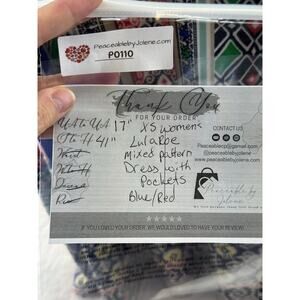 PeaceablebyJolene.com
P0110
Thank You
FOR YOUR ORDER
UA to UA 17" XS Womens
S to H 41" LulaRoe
Waist Mixed pattern
Dress with
Pockets
Blue/Red
CONTACT US
Peaceablecp@gmail.com
peaceablebyjolene
www.peaceablebyjolene.com
Peaceable by
Jolene
IF YOU LOVED YOUR ORDER, WE WOULD LOVED TO HAVE YOUR REVIEW!